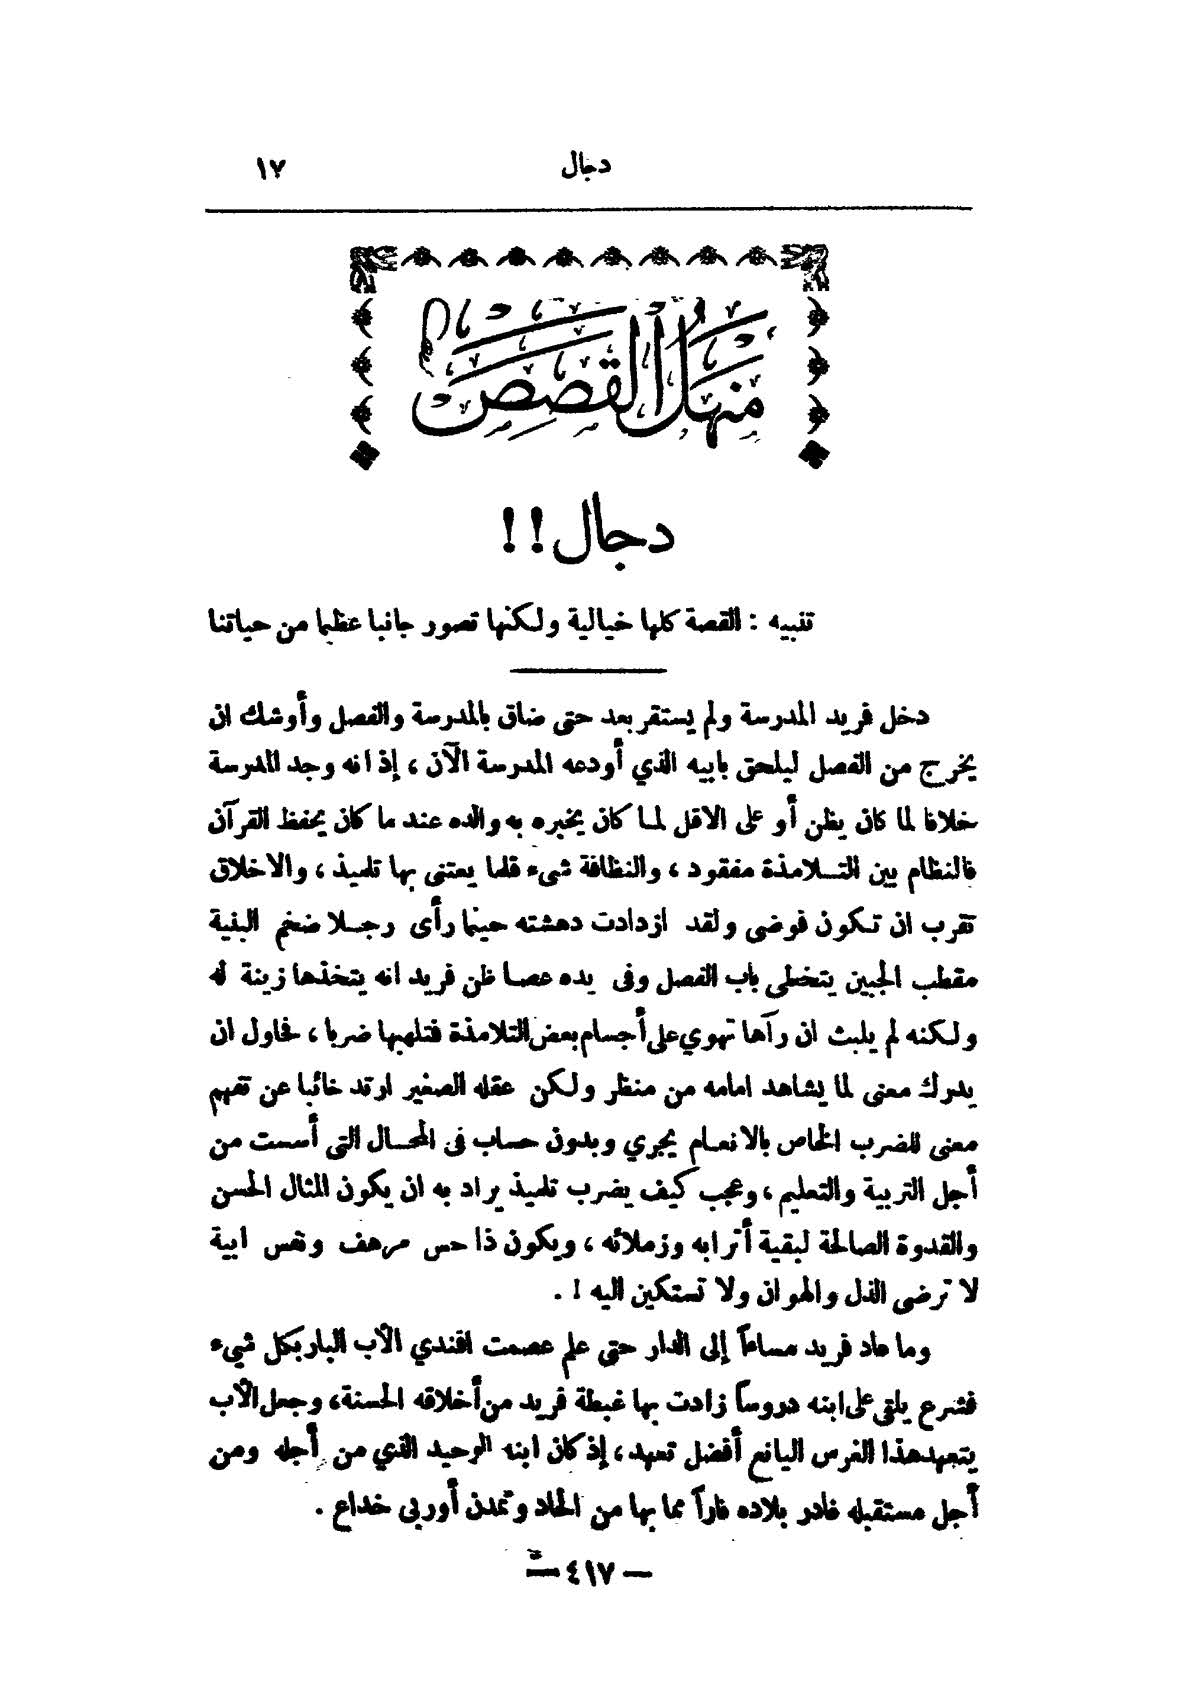 دجال ١٧
منهل القصص
دجال !!
تنبيه : القصة كلها خيالية ولكنها تصور جانبا عظيما من حياتنا
دخل فريد المدرسة ولم يستقر بعد حتى ضاق بالمدرسة والفصل وأوشك ان
يخرج من الفصل ليلحق بابيه الذي أودعه المدرسة الآن ، إذ انه وجد المدرسة
خلافا لما كان يظن أو على الاقل لما كان يخبره به والده عند ما كان يحفظ القرآن
فالنظام بين التلامذة مفقود ، والنظافة شيء قلما يعتنى بها تلميذ ، والاخلاق
تقرب ان تكون فوضى ولقد ازدادت دهشته حينما رأى رجلا ضخم البنية
مقطب الجبين يتخطى باب الفصل وفى يده عصا ظن فريد انه يتخذها زينة له
ولكنه لم يلبث ان رآها تهوي على أجسام بعض التلامذة فتلهبها ضربا ، فحاول ان
يدرك معنى لما يشاهد امامه من منظر ولكن عقله الصغير ارتد خائبا عن تفهم
معنى للضرب الخاص بالانعام يجري وبدون حساب فى المحال التى أسست من
أجل التربية والتعليم ، وعجب كيف يضرب تلميذ يراد به ان يكون المثال الحسن
والقدوة الصالحة لبقية أترابه وزملائه ، ويكون ذا حس مرهف ونفس ابية
لا ترضى الذل والهوان ولا تستكين اليه ! .
وما عاد فريد مساءاً إلى الدار حتى علم عصمت افندي الأب البار بكل شيء
فشرع يلقى على ابنه دروساً زادت بها غبطة فريد من أخلاقه الحسنة، وجعل الأب
يتعهد هذا الغرس اليانع أفضل تعهد ، إذ كان ابنه الوحيد الذي من أجله ومن
أجل مستقبله غادر بلاده فاراً مما بها من الحاد وتمدن أوربى خداع .
— ٤١٧ —